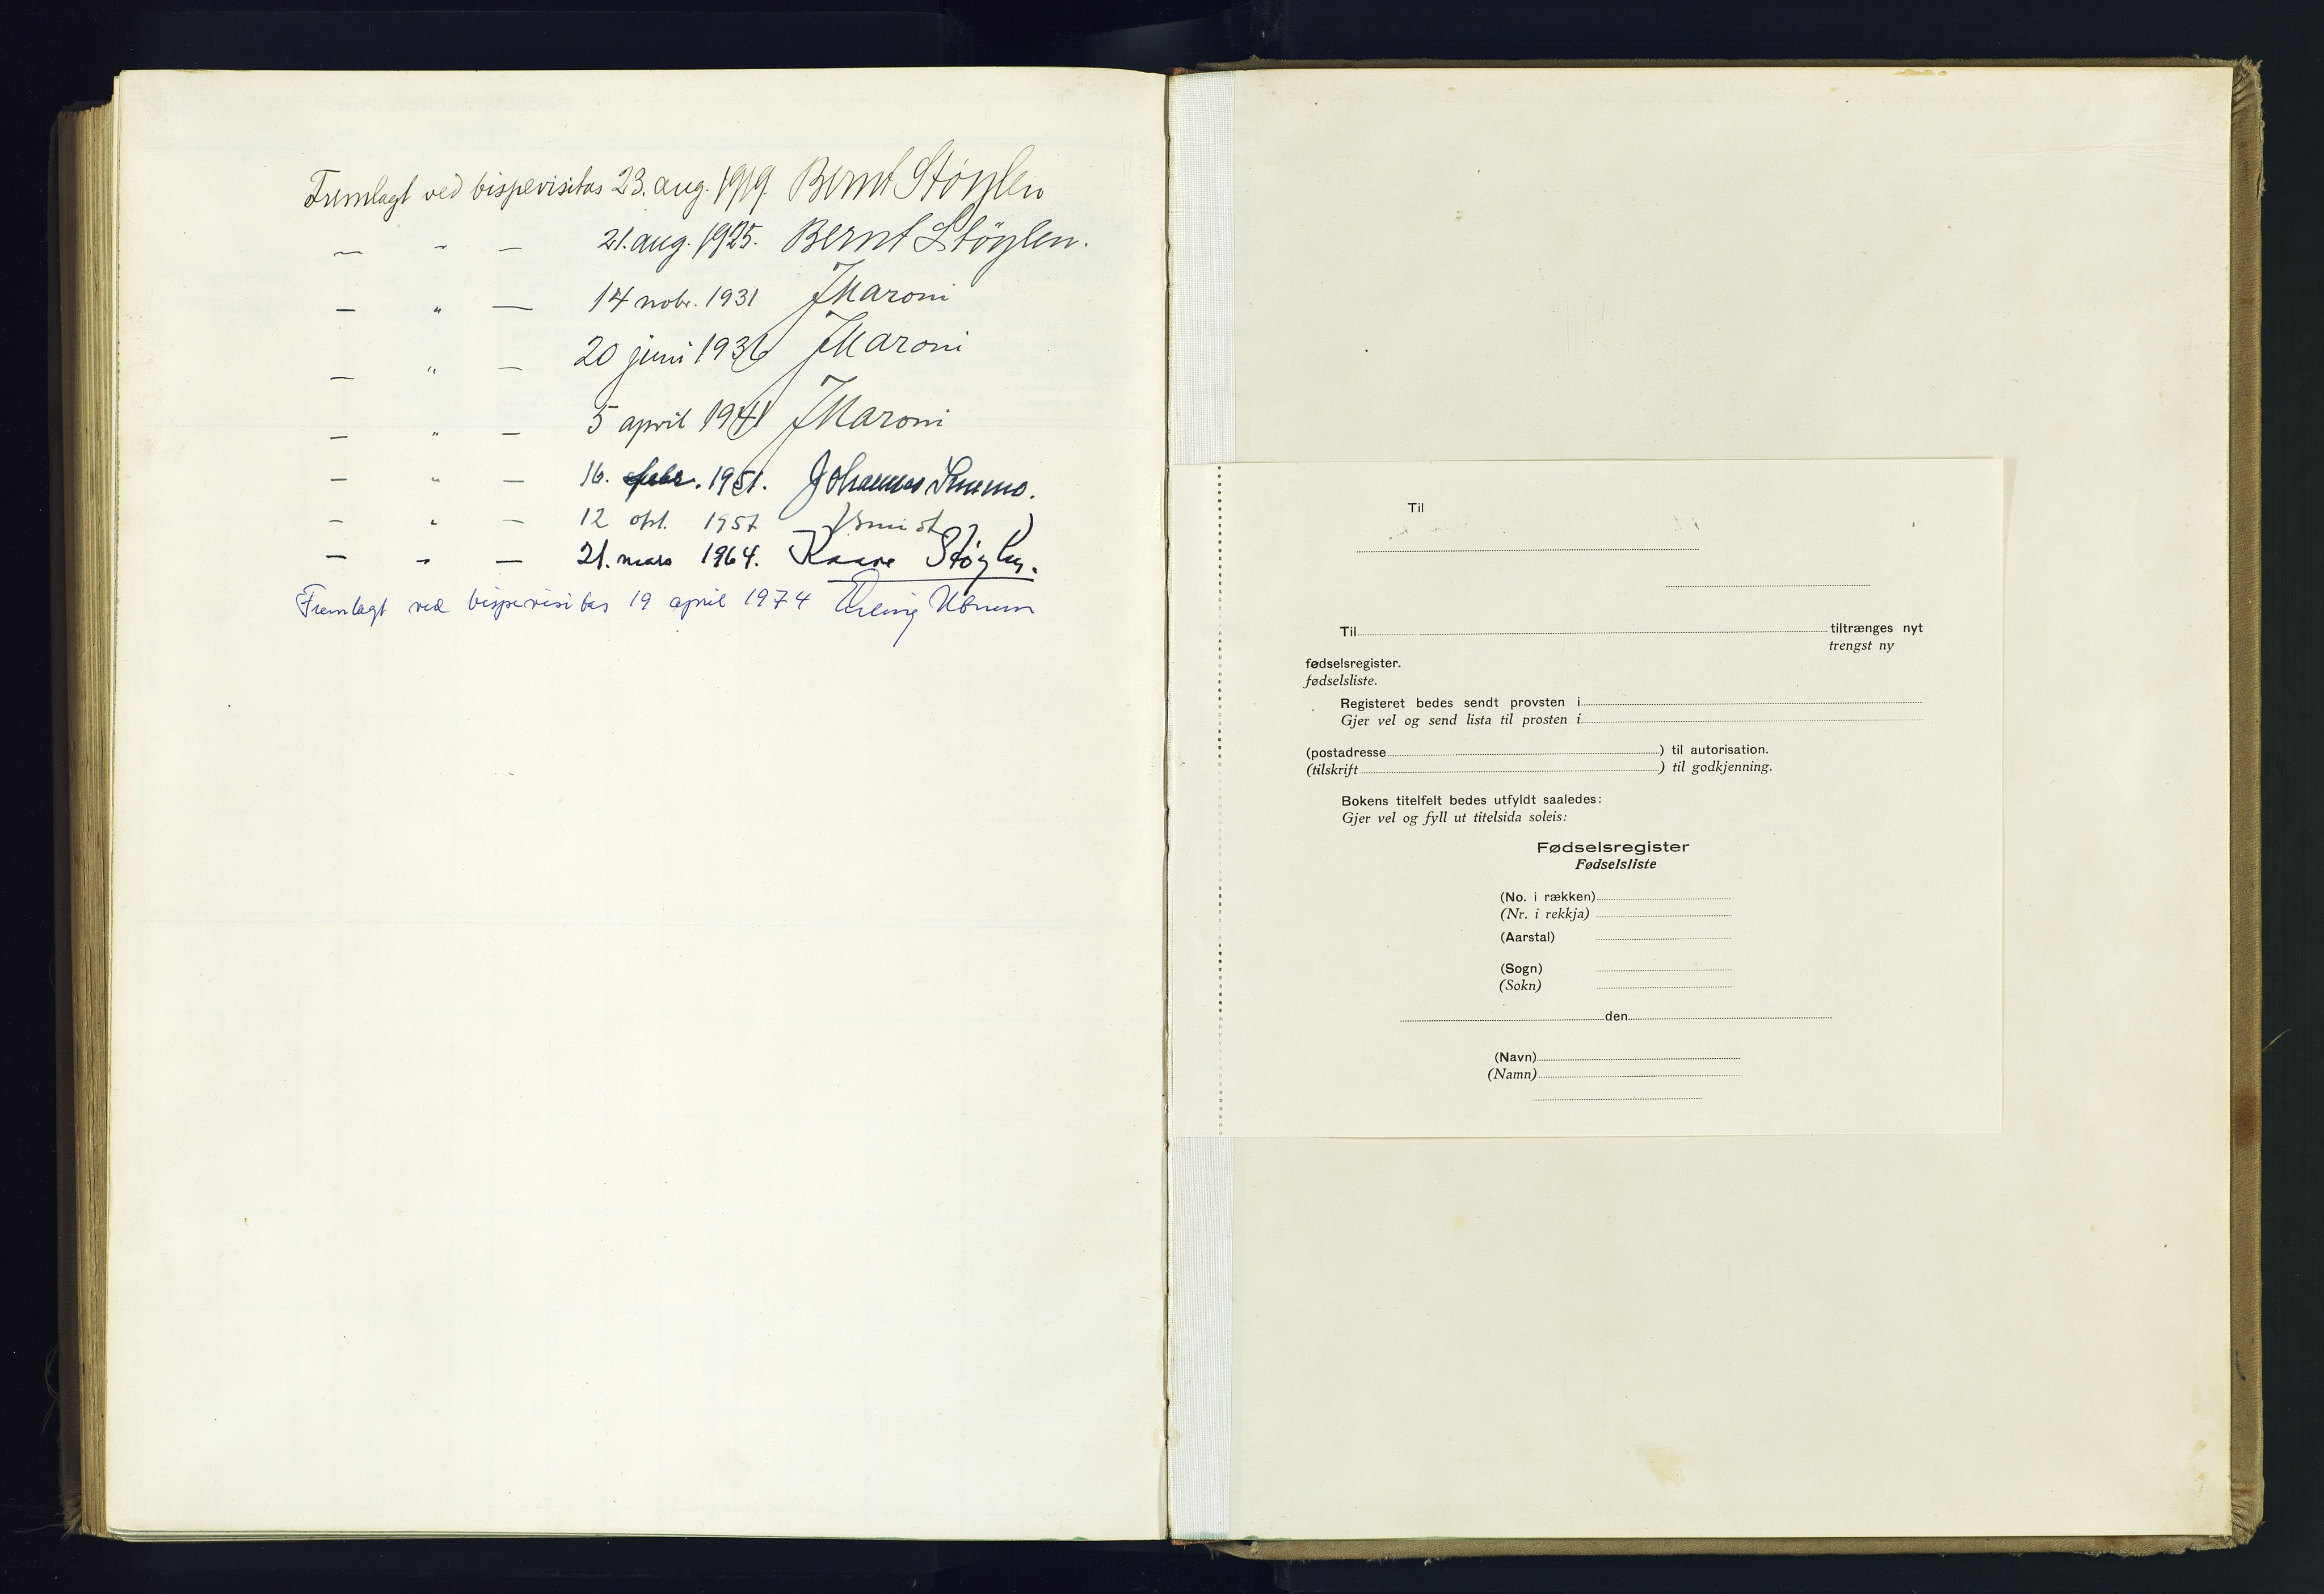 Fremlagt ved bispevisitas 23. aug. 1919. Bernt Støylen
— " — 21. aug. 1925. Bernt Støylen.
— " — 14 novbr. 1931 JMaroni
— " — 20 juni 1936 JMaroni
— " — 5 april 1941 JMaroni
— " — 16. febr. 1951. Johannes Smemo.
— " — 12 okt. 1957
— " — 21. mars 1964. Kaare Støylen.
Fremlagt ved bispevisitas 19 april 1974 Erling Utnem
Til
Til tiltrænges nyt
trengst ny
fødselsregister.
fødselsliste.
Registeret bedes sendt provsten i
Gjer vel og send lista til prosten i
(postadresse ) til autorisation.
(tilskrift ) til godkjenning.
Bokens titelfelt bedes utfyldt saaledes:
Gjer vel og fyll ut titelsida soleis:
Fødselsregister
Fødselsliste
(No. i rækken)
(Nr. i rekkja)
(Aarstal)
(Sogn)
(Sokn)
den
(Navn)
(Namn)